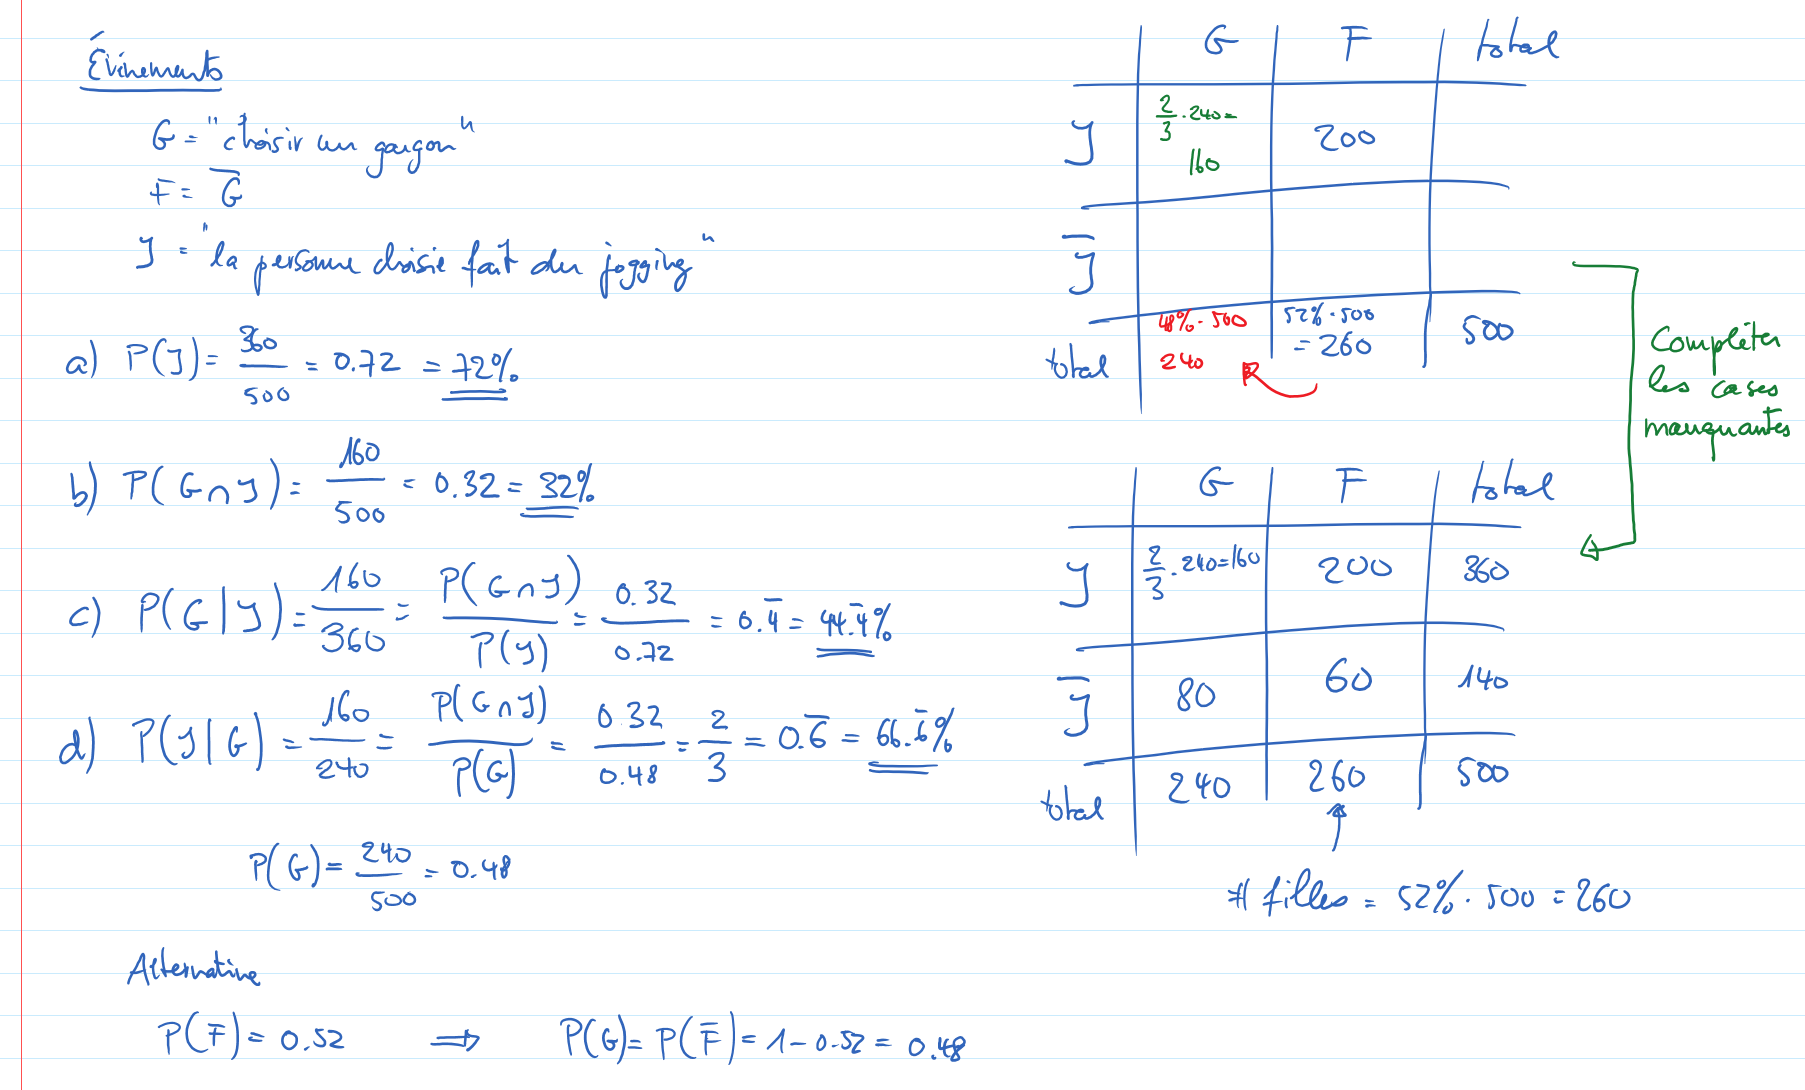 Événements
G = "choisir un garçon"
F = G̅
J = "la personne choisie fait du jogging"
a) P(J) = 360/500 = 0.72 = 72%
b) P(G∩J) = 160/500 = 0.32 = 32%
c) P(G|J) = 160/360 = P(G∩J)/P(J) = 0.32/0.72 = 0.4̅ = 44.4̅%
d) P(J|G) = 160/240 = P(G∩J)/P(G) = 0.32/0.48 = 2/3 = 0.6̅ = 66.6̅%
P(G) = 240/500 = 0.48
Alternative
P(F) = 0.52 ⟹ P(G) = P(F̅) = 1 - 0.52 = 0.48
G F total
J 2/3 · 240 = 160 200
J̅
48% · 500 52% · 500
total 240 = 260 500
Compléter
les cases
manquantes
G F total
J 2/3 · 240 = 160 200 360
J̅ 80 60 140
total 240 260 500
# filles = 52% · 500 = 260